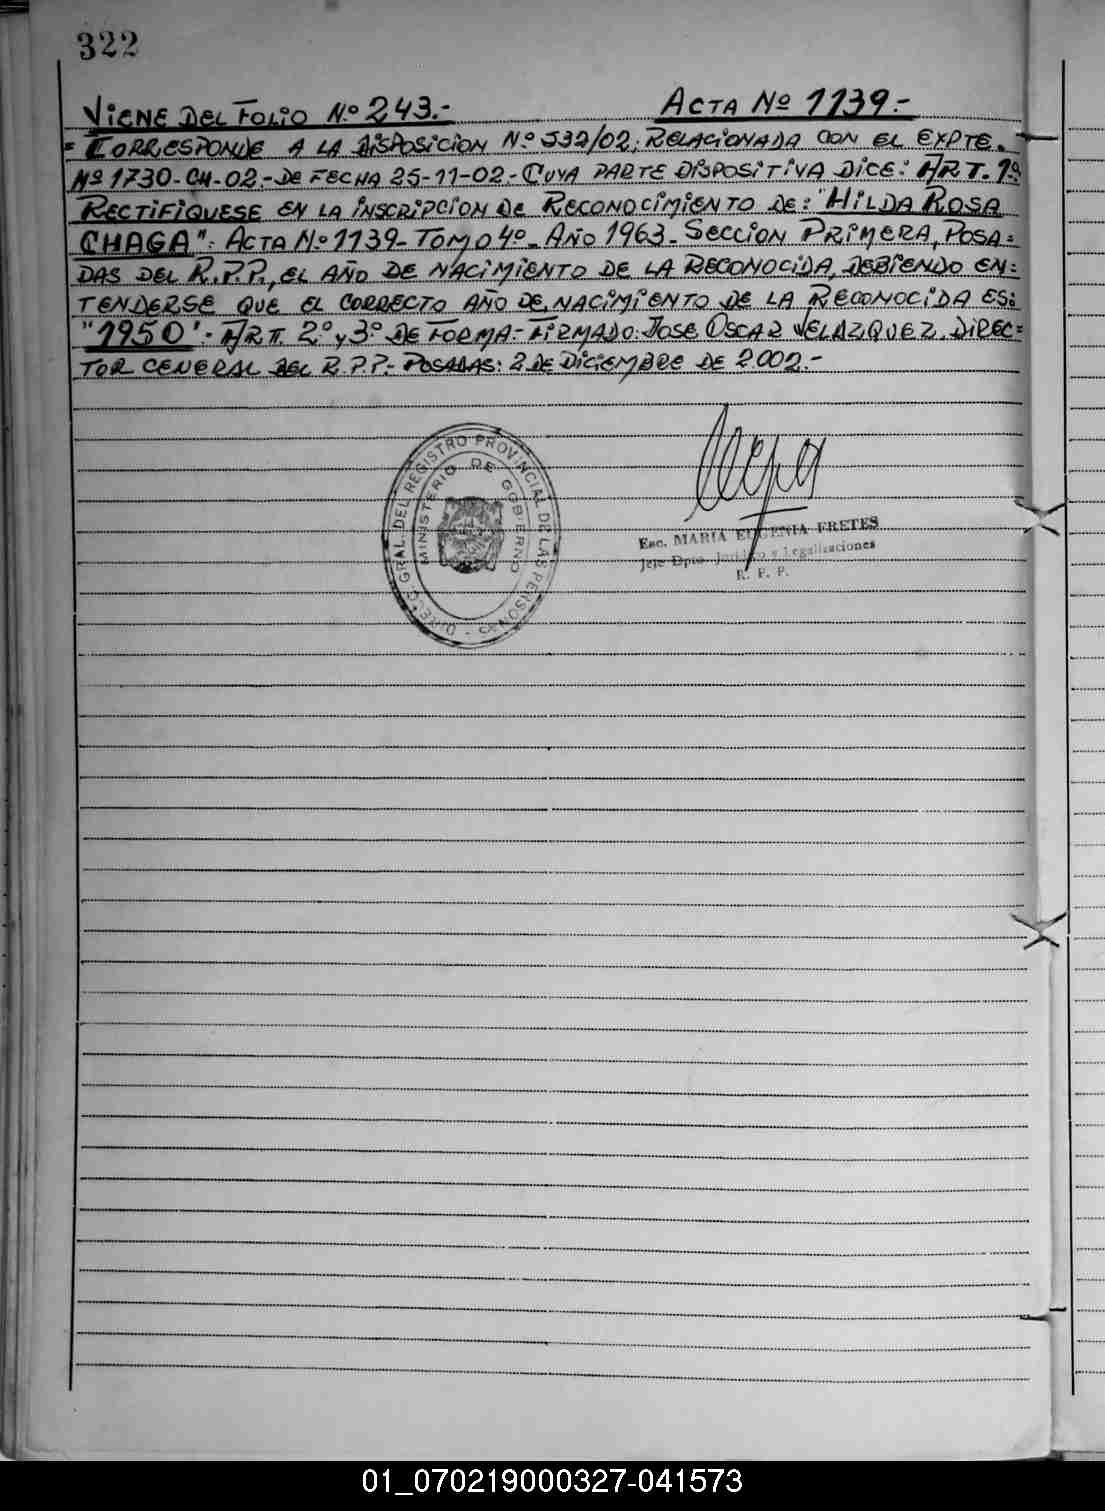 322
VIENE DEL FOLIO Nº 243.- ACTA Nº 1139.-
= CORRESPONDE A LA DISPOSICION Nº 532/02; RELACIONADA CON EL EXPTE.
Nº 1730-CH-02.- DE FECHA 25-11-02.- CUYA PARTE DISPOSITIVA DICE: ART. 1º
RECTIFIQUESE EN LA INSCRIPCION DE RECONOCIMIENTO DE: "HILDA ROSA
CHAGA". ACTA Nº 1139- TOMO 4º- AÑO 1963- SECCION PRIMERA, POSA=
DAS DEL R.P.P., EL AÑO DE NACIMIENTO DE LA RECONOCIDA, DEBIENDO EN=
TENDERSE QUE EL CORRECTO AÑO DE NACIMIENTO DE LA RECONOCIDA ES:
"1950".- ART. 2º y 3º DE FORMA.- FIRMADO: JOSE OSCAR VELAZQUEZ. DIREC=
TOR GENERAL DEL R.P.P.- POSADAS: 2 DE DICIEMBRE DE 2.002.-
DIRECC. GRAL. DEL REGISTRO PROVINCIAL DE LAS PERSONAS
MINISTERIO DE GOBIERNO
Esc. MARIA EUGENIA FRETES
Jefe Dpto. Jurídico y Legalizaciones
R. P. P.
01_070219000327-041573